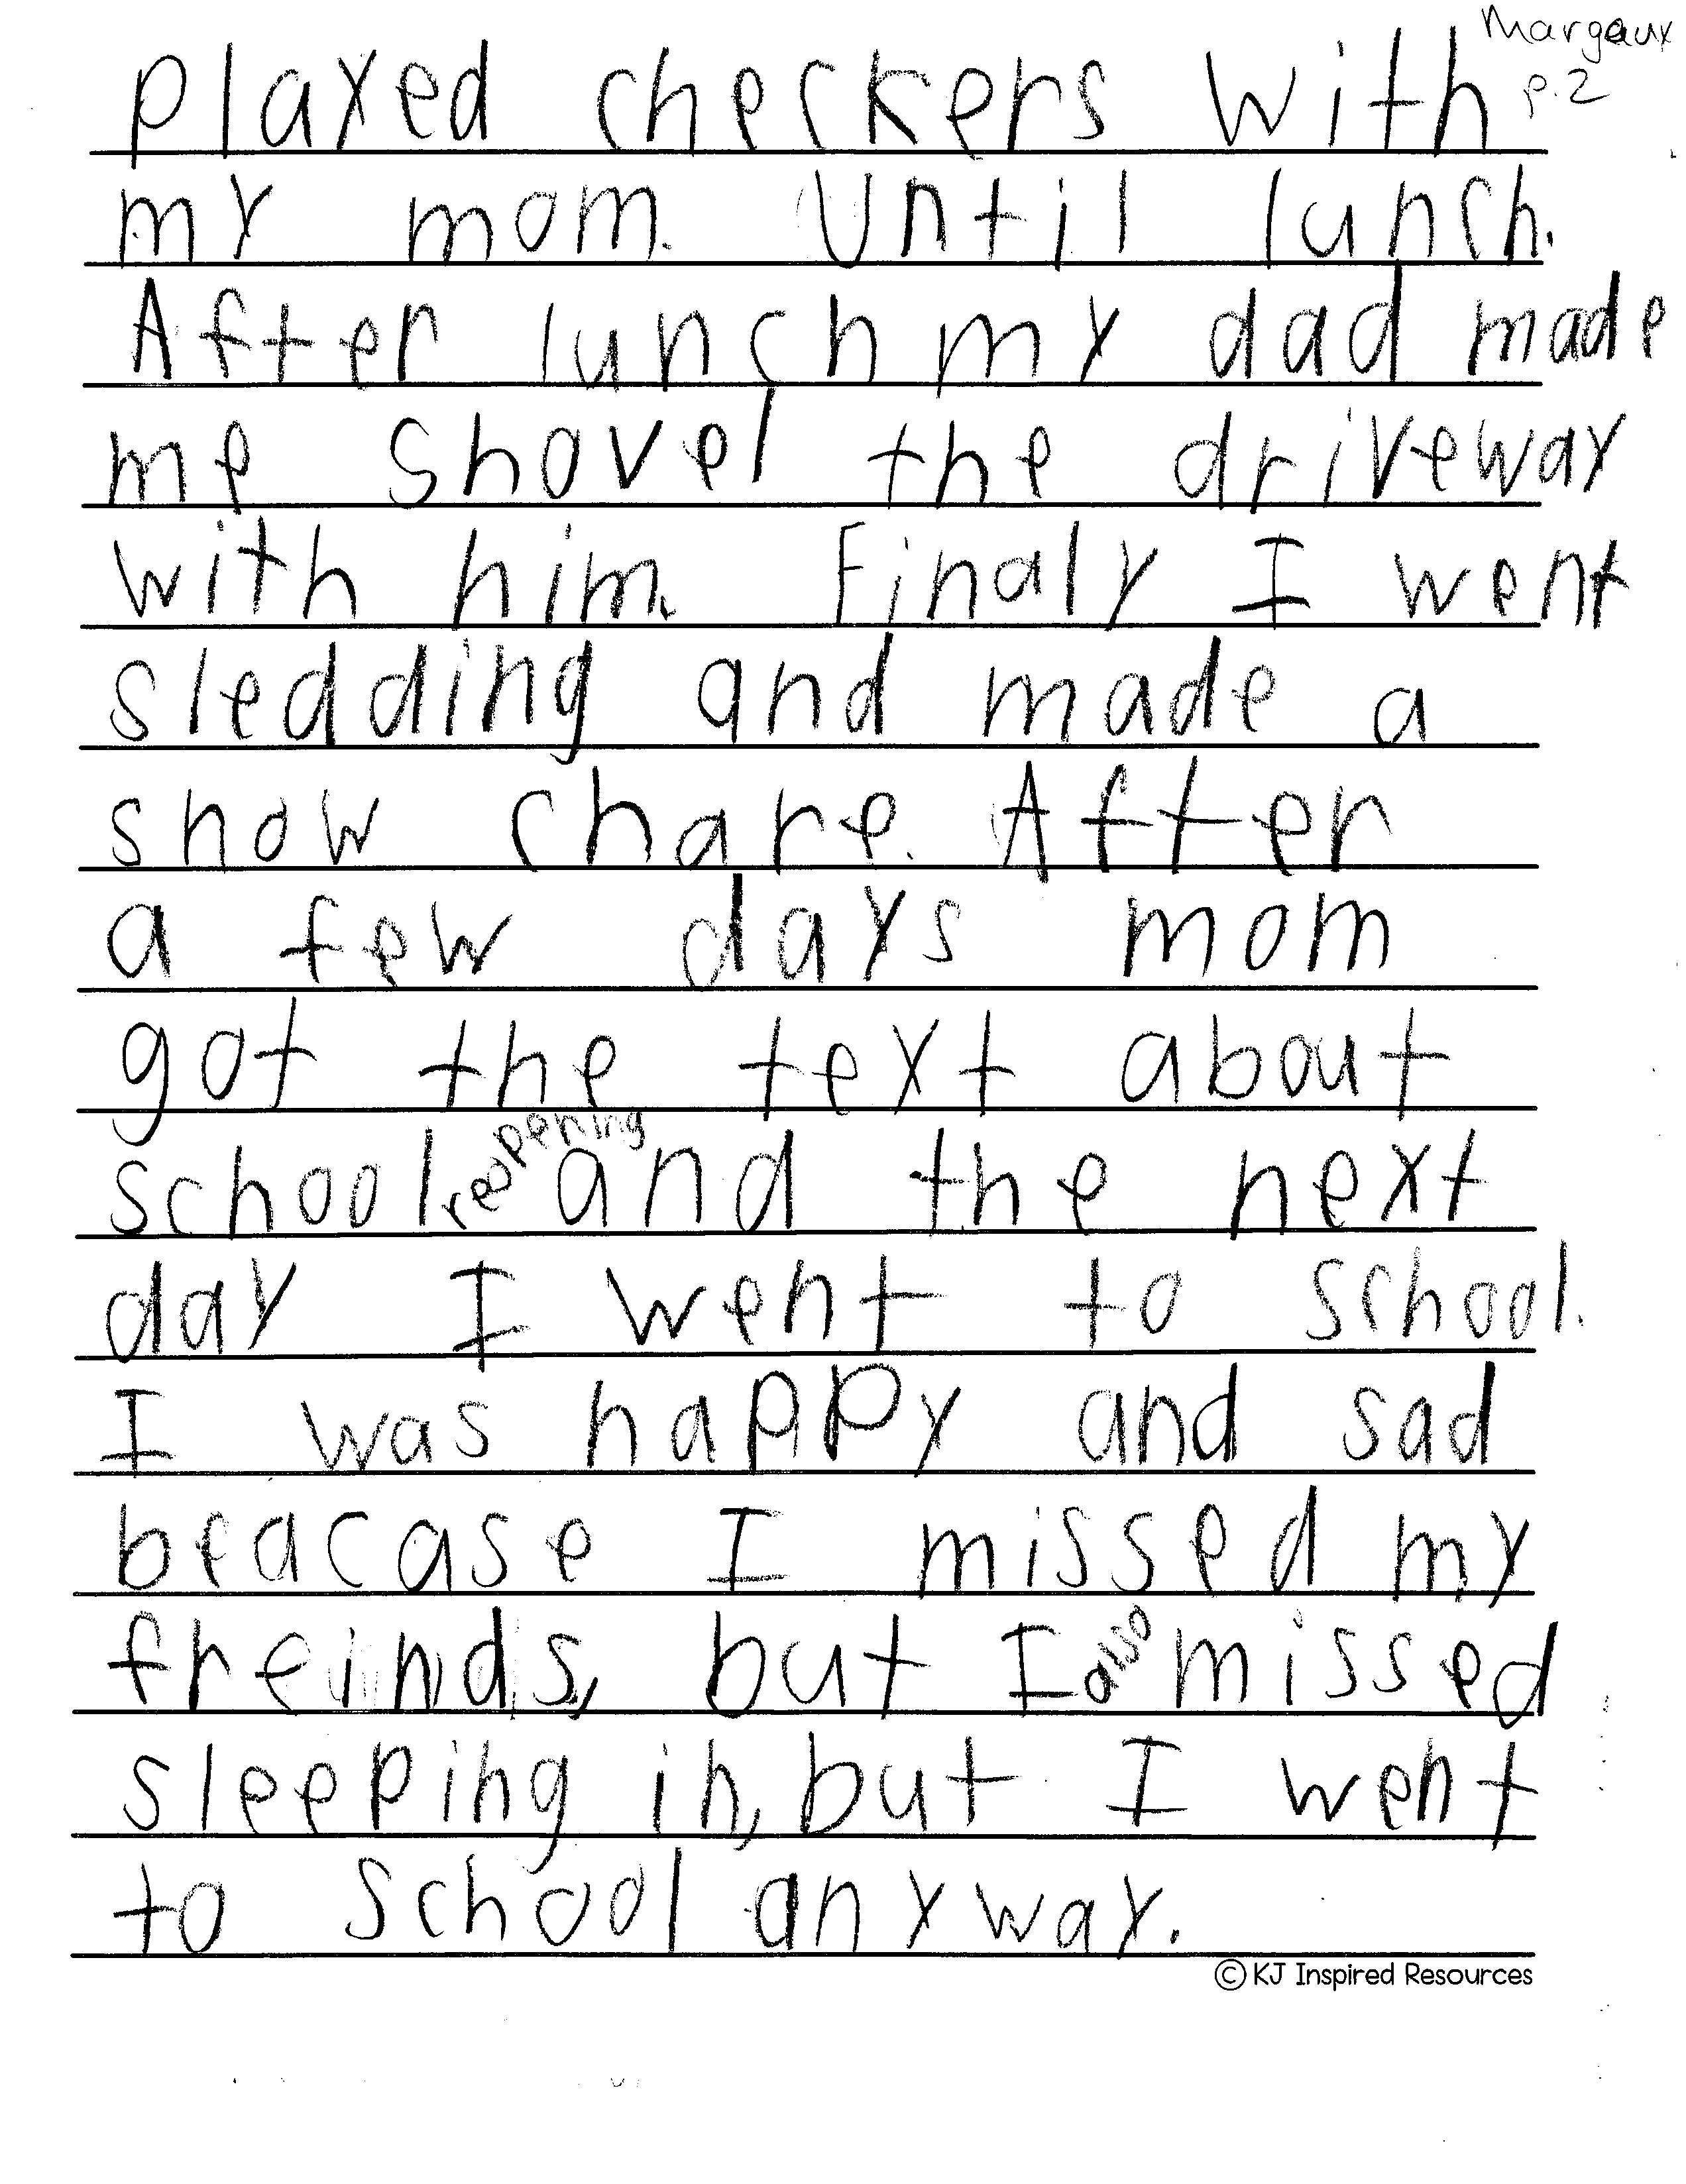 Margaux
p.2
played checkers with
my mom. Until lunch.
After lunch my dad made
me shovel the driveway
with him. Finaly I went
sledding and made a
snow chare. After
a few days mom
got the text about
school reopening and the next
day I went to school.
I was happy and sad
beacase I missed my
freinds, but I also missed
sleeping in, but I went
to school anyway.
© KJ Inspired Resources